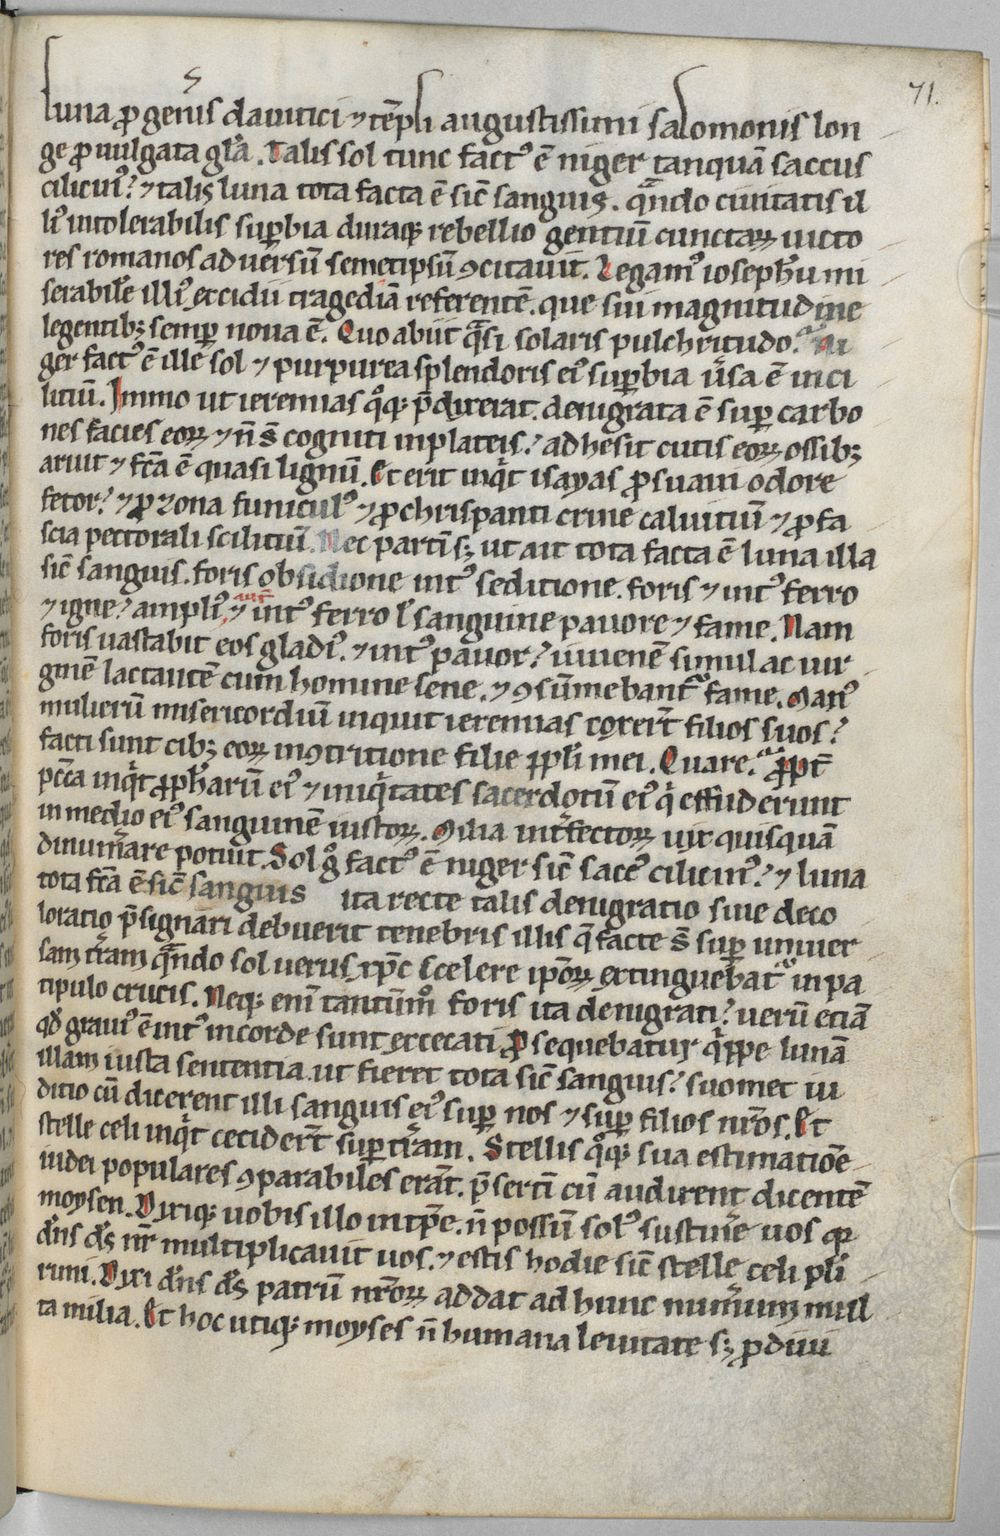 71.
luna ꝓ geniͤs dauitici ⁊ tēpli augustissimi salomonis lon
ge ꝓ uulgata gl̄a. Talis sol tunc factꝰ ē niger tanquā saccus
cilicinꝰ? ⁊ talis luna tota facta ē sic̄ sanguis. qͣndo ciuitatis il
liꝰ intolerabilis suꝑbia duraqꝫ rebellio gentiū cunctaꝝ uicto
res romanos aduersū semetipsū ꝯcitauit. Legamꝰ ioseph̄u mi
serabilē illiꝰ excidii tragediā referentē. que sui magnitudine
legentibꝫ semꝑ noua ē. Quo abiit qͣsi solaris pulchritudo. Ni
ger factꝰ ē ille sol ⁊ purpurea splendoris eiꝰ suꝑbia ūsa ē in ci
litiū. Immo ut ieremias qͦqꝫ p̄dixerat. denigrata ē suꝑ carbo
nes facies eoꝝ ⁊ n̄ s̄ cogniti in plateis? adhesit cutis eoꝝ ossibꝫ
aruit ⁊ fc̄a ē quasi lignū. Et erit inqͥt isayas ꝓ suaui odore
fetor? ⁊ ꝓ zona funiculꝰ ⁊ ꝓ chrispanti crine caluitiū ⁊ ꝓ fa
scia pectorali scilitiū. Nec partī sꝫ ut ait tota facta ē luna illa
sic̄ sanguis. foris obsidione intꝰ seditione. foris ⁊ intꝰ ferro
⁊ igne? ampliꝰ, ⁊ intꝰ ferro l̄ sanguine pauore ⁊ fame. Nam
foris uastabit eos gladiꝰ. ⁊ intꝰ pauor? iuuenē simul ac uir
ginē lactantē cum homine sene. ⁊ ꝯsūmebant᷑ fame. Manꝰ
mulierū misericordiū inquit ieremias coxer̄t filios suos?
facti sunt cibꝫ eoꝝ in ꝯtritione filie ppl̄i mei. Quare. ꝓpt̄
pc̄ca inqͥt ꝓph̄arū eiꝰ ⁊ iniqͥtates sacerdotū eiꝰ qͥ effuderunt
in medio eiꝰ sanguinē iustoꝝ. Milia int̄fectoꝝ uix quisquā
dinum̄are potuit. Sol gͦ factꝰ ē niger sic̄ saccꝰ cilicinꝰ? ⁊ luna
tota fc̄a ē sic̄ sanguis ita recte talis denigratio siue deco
loratio p̄signari debuerit tenebris illis q̄ facte s̄ suꝑ uniuer
sam t̄ram qͣndo sol uerus xp̄c scelere ip̄oꝝ extinguebat᷑ in pa
tipulo crucis. Neqꝫ enī tantūmͦ foris ita denigrati? uerū etiā
qd̄ grauiꝰ ē intꝰ in corde sunt excecati. Prosequebatur qͥppe lunā
illam iusta sententia. ut fieret tota sic̄ sanguis? suomet iu
ditio cū dicerent illi sanguis eiꝰ suꝑ nos ⁊ suꝑ filios nr̄os. Et
stelle celi inqͥt cecider̄t suꝑ t̄ram. Stellis qͦqꝫ sua estimatiōe
iudei populares ꝯparabiles erāt. p̄sertī cū audirent dicentē
moysen. Dixiqꝫ uobis illo in tp̄e. n̄ possū solꝰ sustin̄e uos qꝛ
dn̄s ds̄ nr̄ multiplicauit uos. ⁊ estis hodie sic̄ stelle celi plꝰi
rimi. Dn̄s ds̄ patrū nr̄oꝝ addat ad hunc num̄um mul
ta milia. Et hoc utiqꝫ moyses n̄ humana leuitate sꝫ ꝓ diui